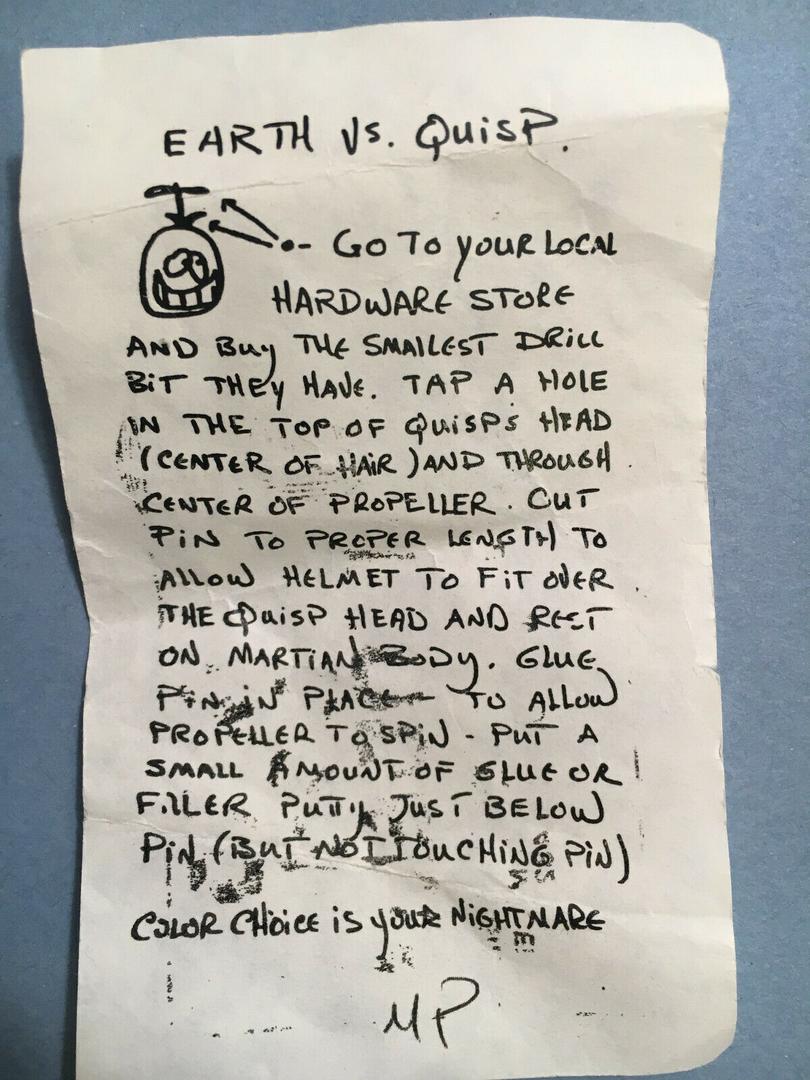 EARTH VS. QUISP.
- GO TO YOUR LOCAL
HARDWARE STORE
AND BUY THE SMALLEST DRILL
BIT THEY HAVE. TAP A HOLE
IN THE TOP OF QUISPS HEAD
(CENTER OF HAIR) AND THROUGH
CENTER OF PROPELLER. CUT
PIN TO PROPER LENGTH TO
ALLOW HELMET TO FIT OVER
THE QUISP HEAD AND REST
ON MARTIAN BODY. GLUE
PIN IN PLACE TO ALLOW
PROPELLER TO SPIN - PUT A
SMALL AMOUNT OF GLUE OR
FILLER PUTTY JUST BELOW
PIN (BUT NOT TOUCHING PIN)
COLOR CHOICE IS YOUR NIGHTMARE
MP